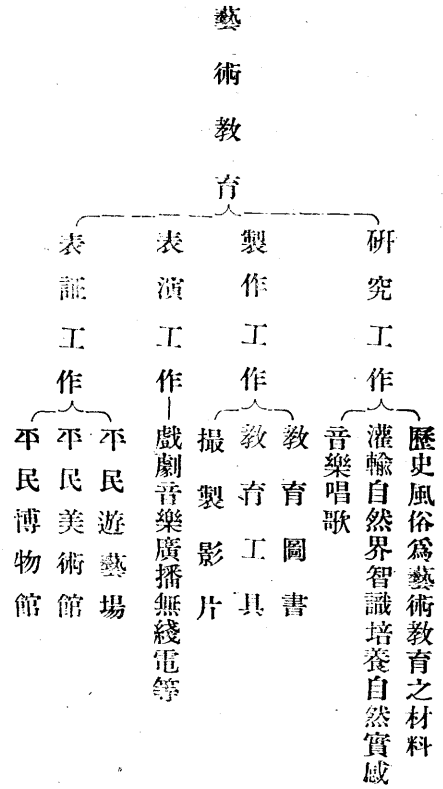 藝術教育
研究工作
歷史風俗爲藝術教育之材料
灌輸自然界智識培養自然實感
音樂唱歌
製作工作
教育圖書
教育工具
撮製影片
表演工作
戲劇音樂廣播無綫電等
表証工作
平民遊藝場
平民美術館
平民博物館